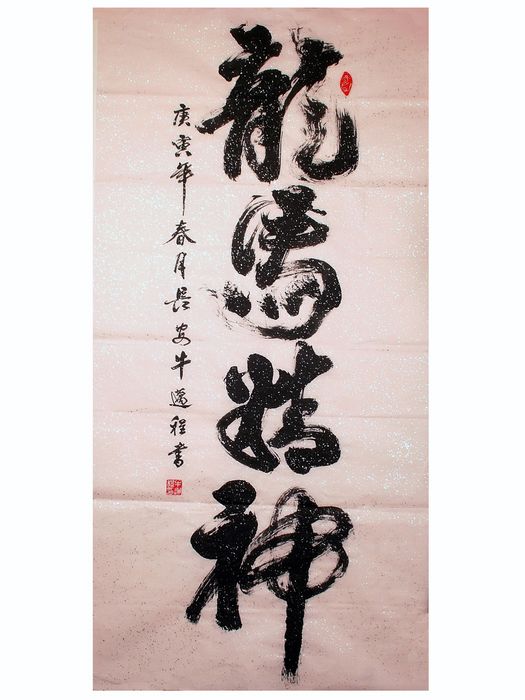 龍馬精神
庚寅年春月長安牛邁程書